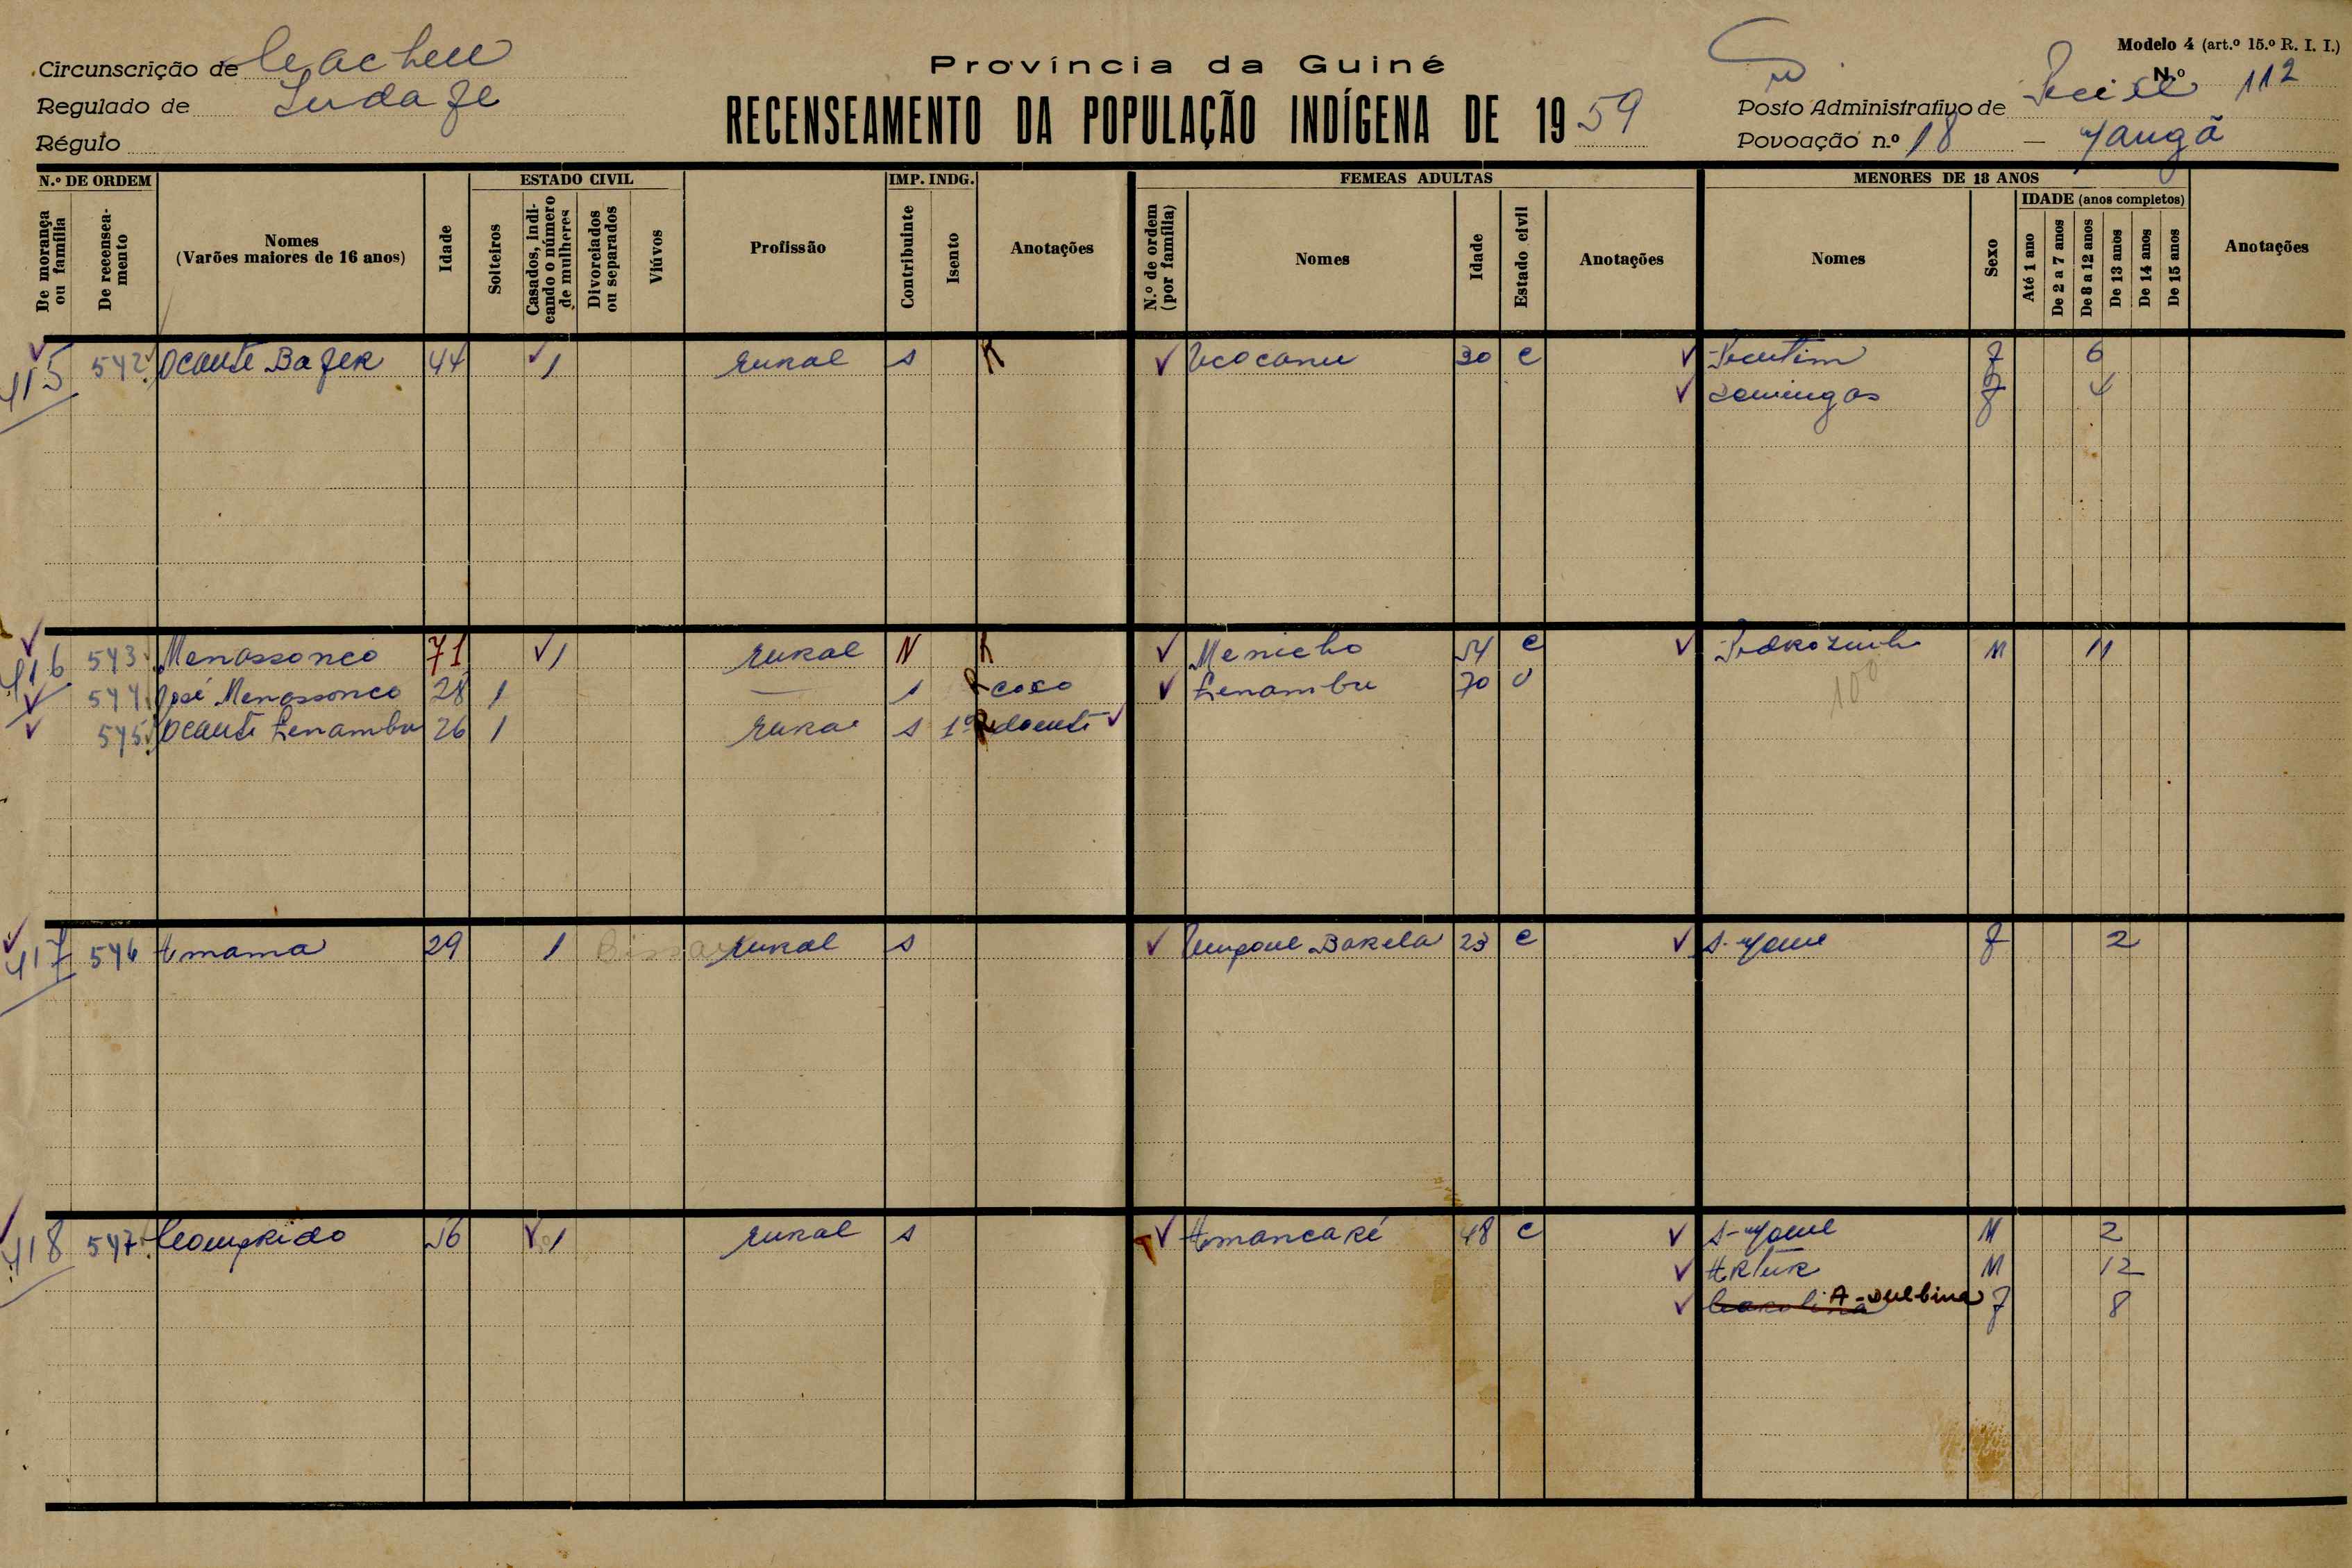 Modelo 4 (art.º 15.º R. I. I.)
Circunscrição de Cacheu
Província da Guiné
N.º 112
Regulado de
RECENSEAMENTO DA POPULAÇÃO INDÍGENA DE 1959
Posto Administrativo de Pecixe
Régulo
Povoação n.º 18 —
N.º DE ORDEM
De morança ou família
De recenseamento
Nomes
(Varões maiores de 16 anos)
Idade
ESTADO CIVIL
Solteiros
Casados, indicando o número de mulheres
Divorciados ou separados
Viúvos
Profissão
IMP. INDG.
Contribuinte
Isento
Anotações
FEMEAS ADULTAS
N.º de ordem (por família)
Nomes
Idade
Estado civil
Anotações
MENORES DE 18 ANOS
Nomes
Sexo
IDADE (anos completos)
Até 1 ano
De 2 a 7 anos
De 8 a 12 anos
De 13 anos
De 14 anos
De 15 anos
Anotações
415 542 Ocante 44 1 rural s R Ucocanu 30 c F 6
Domingas F 4
416 543 Menassonco 71 1 rural N R Menicho 54 c M 11
544 José Menassonco 28 1 — 1 R coxo Lenambu 70 v 100
545 Ocante Lenambu 26 1 rural s 1º R doente
417 546 Amama 29 1 Bissau rural s 23 c F 2
418 547 Comprido 56 1 rural s Amancaré 48 c M 2
Artur M 12
Carolina F 8